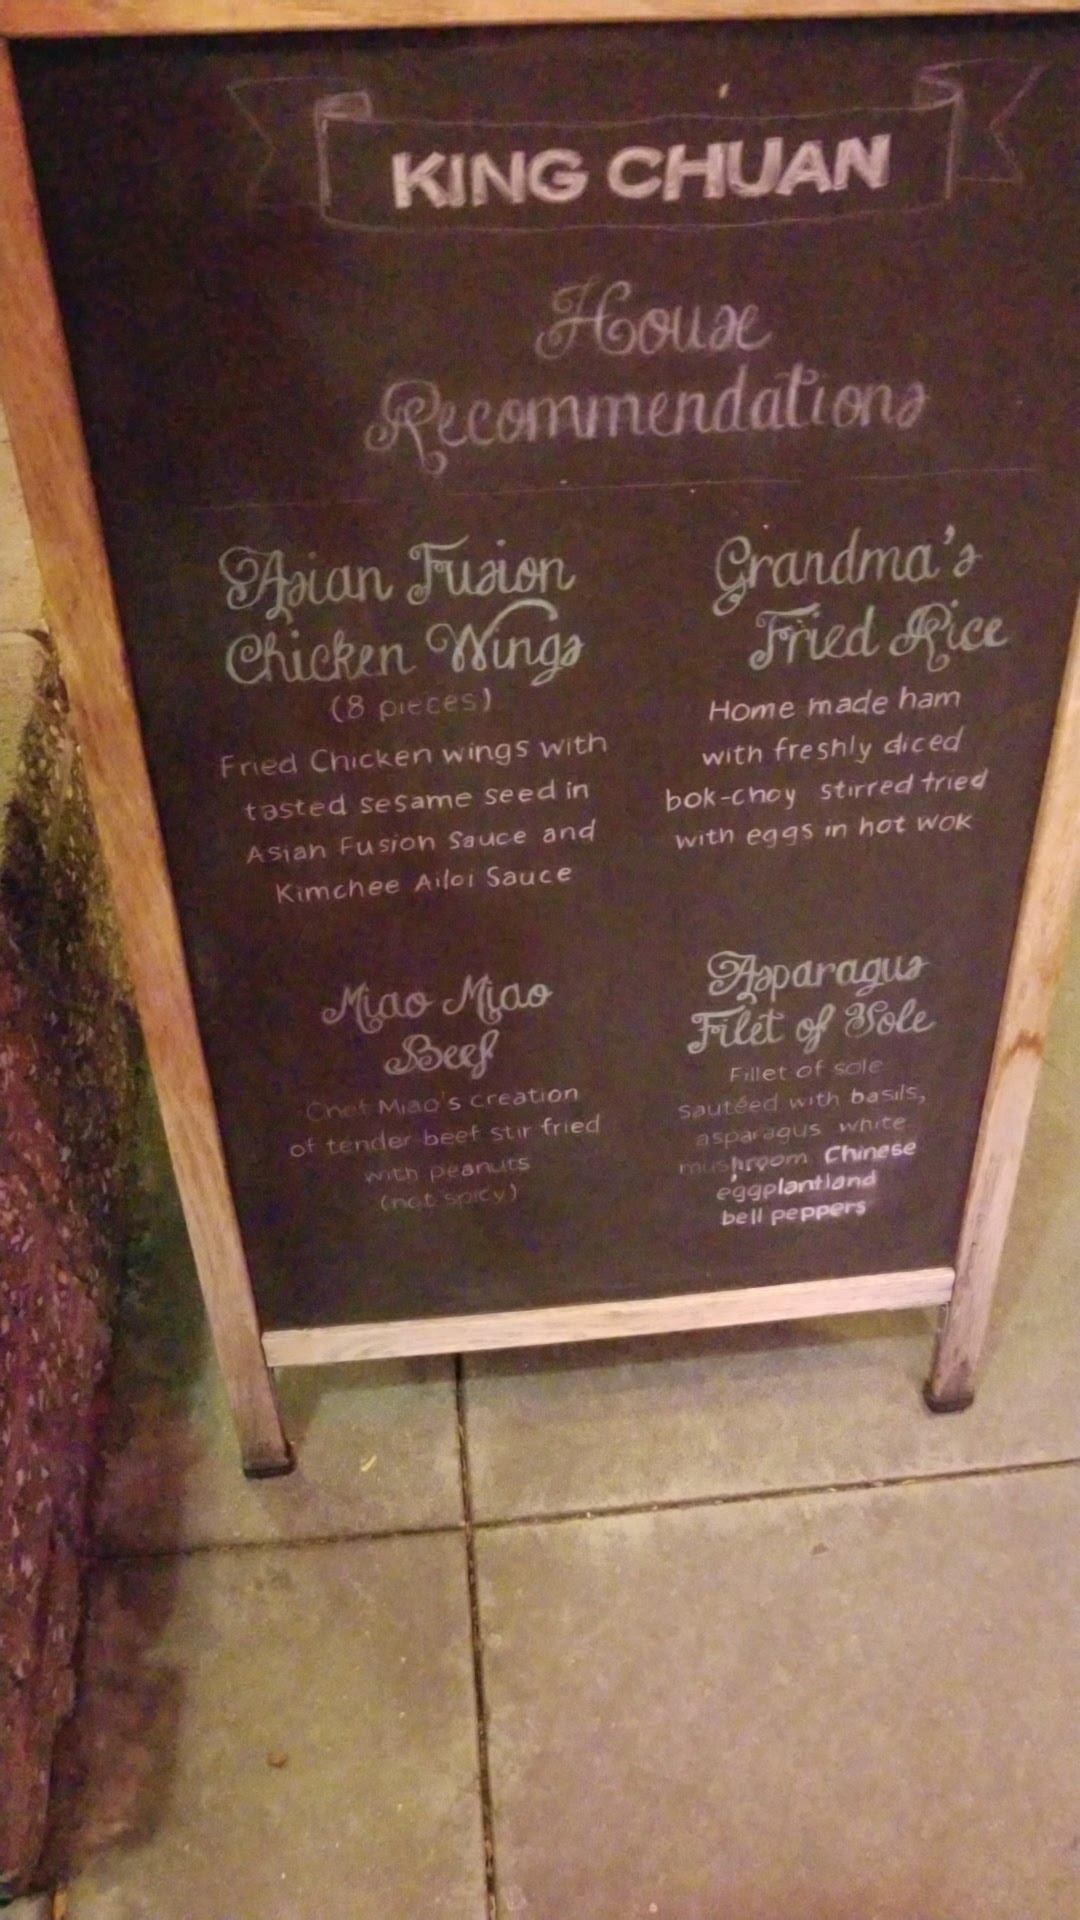 KING CHUAN
House
Recommendations
Asian Fusion
Chicken Wings
(8 pieces)
Fried Chicken wings with
tasted sesame seed in
Asian Fusion Sauce and
Kimchee Ailoi Sauce
Grandma's
Fried Rice
Home made ham
with freshly diced
bok-choy stirred fried
with eggs in hot wok
Miao Miao
Beef
Chef Miao's creation
of tender beef stir fried
with peanuts
(not spicy)
Asparagus
Filet of Sole
Fillet of sole
sautéed with basils,
asparagus white
mushroom Chinese
eggplantland
bell peppers